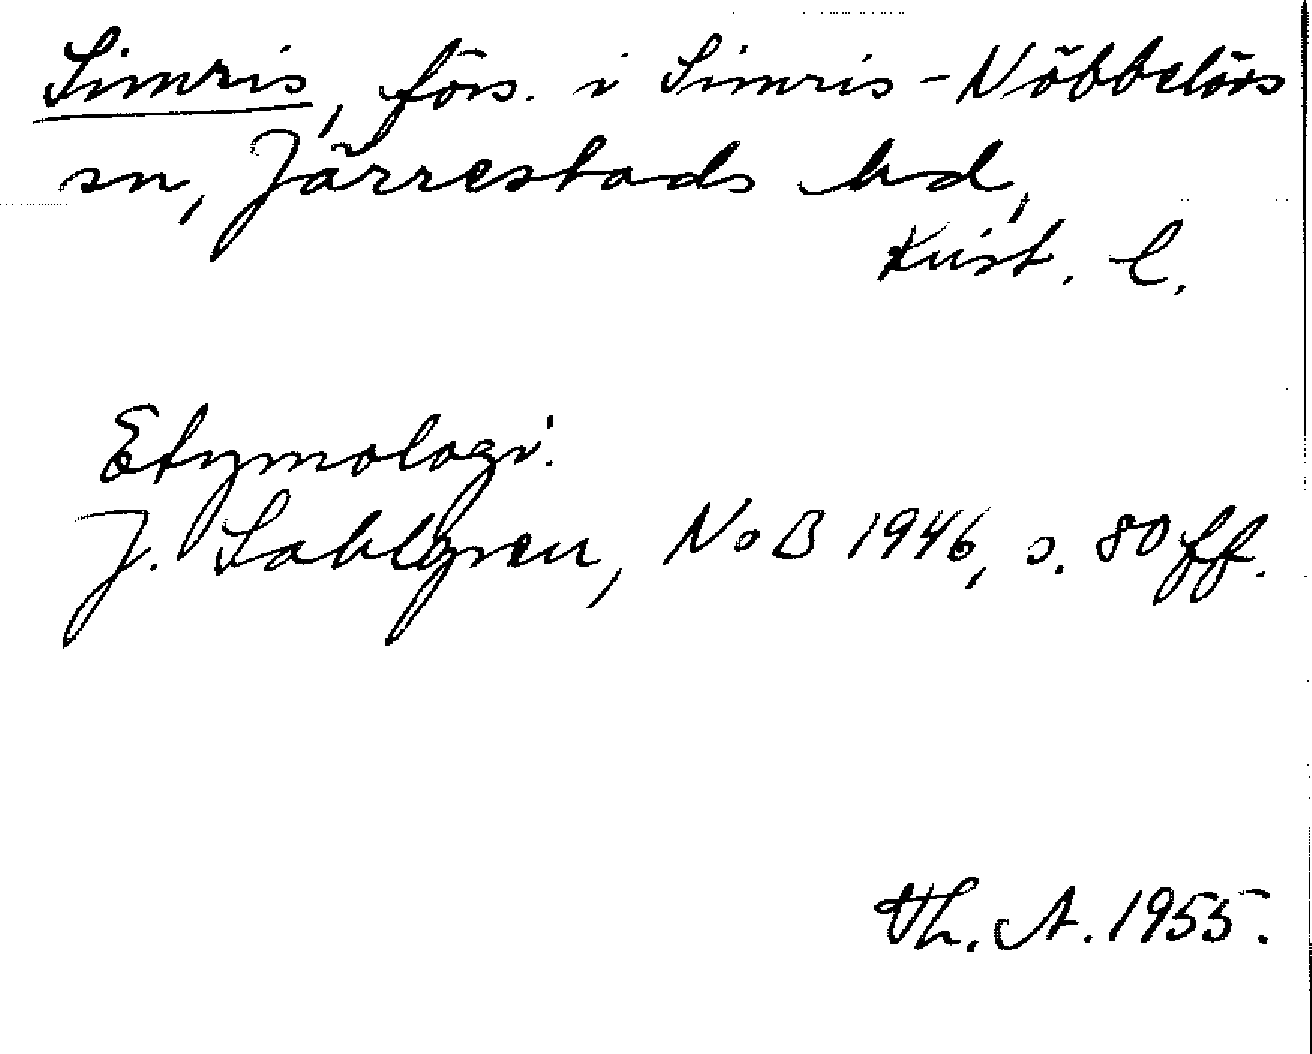 Simris, förs. i Simris-Nöbbelövs
sn, Järrestads hd,
Krist. l.
Etymologi:
J. Sahlgren, NoB 1946, s. 80 ff.
Th. A. 1955.